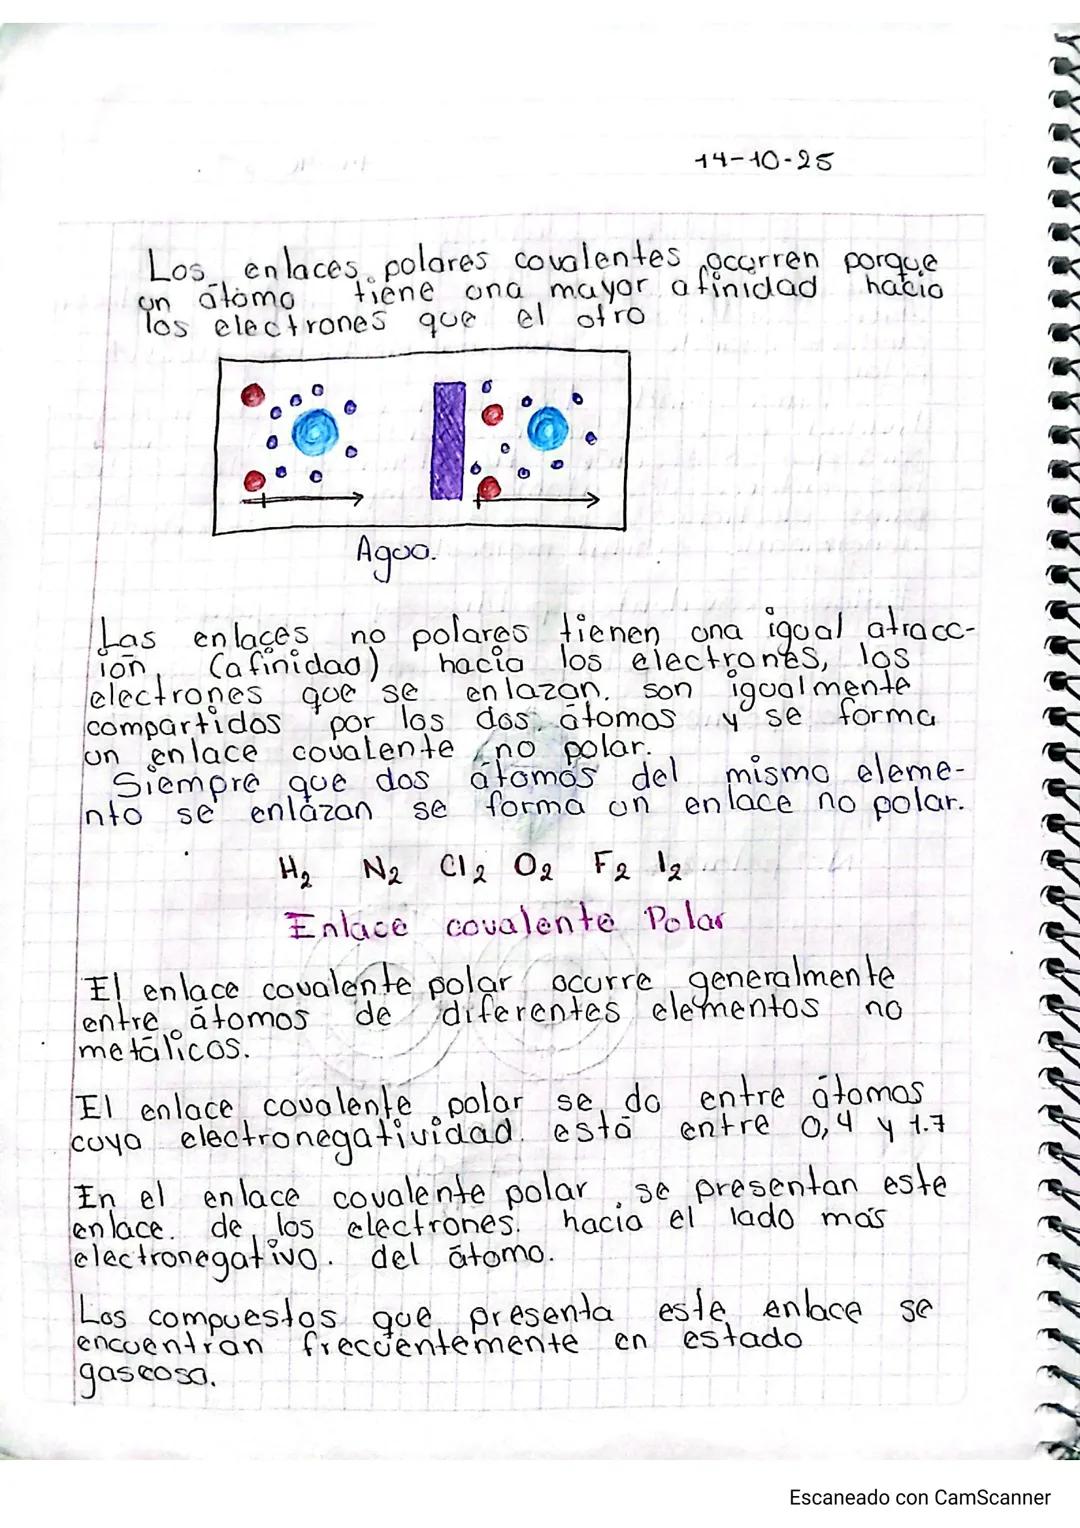 14-10-25
Los enlaces polares covalentes ocurren porque
un átomo tiene una mayor afinidad hacia
los electrones que el otro
Agua.
Las enlaces no polares tienen una igual atracc-
ión (afinidad) hacia los electrones, los
electrones que se enlazan. son igualmente
compartidos por los dos átomos y se forma
un enlace covalente no polar.
Siempre que dos átomos del mismo eleme-
nto se enlázan se forma un enlace no polar.
H₂ N₂ Cl₂ O₂ F₂ I₂
Enlace covalente Polar
El enlace covalente polar ocurre generalmente
entre átomos de diferentes elementos no
metálicos.
El enlace covalente polar se da entre átomos
cuya electronegatividad. está entre 0,4 y 1.7
En el enlace covalente polar se presentan este
enlace. de los electrones. hacia el lado más
electronegativo. del átomo.
Los compuestos que presenta este enlace se
encuentran frecuentemente en estado
gaseosa.
Escaneado con CamScanner